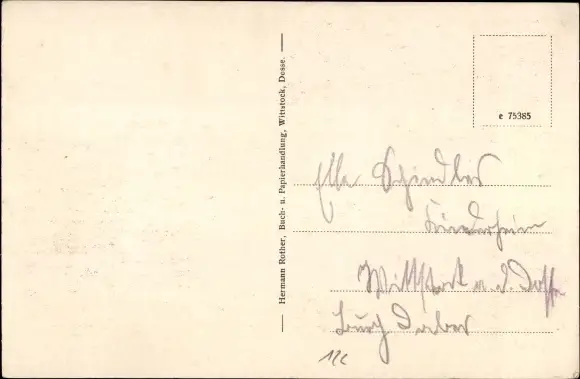 Hermann Rother, Buch- u. Papierhandlung, Wittstock, Dosse.
e 75385
Ella Schindler
Kinderheim
Wittstock a. d. Dosse
Burg Daber